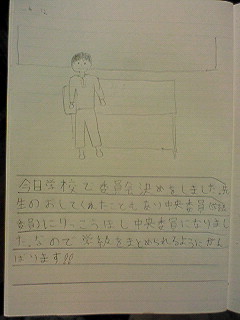 今日学校で委員会決めをしました。先
生のおしてくれたこともあり中央委員(学級
委員)にりっこうほし中央委員になりまし
た。なので学級をまとめられるようにがん
ばります!!